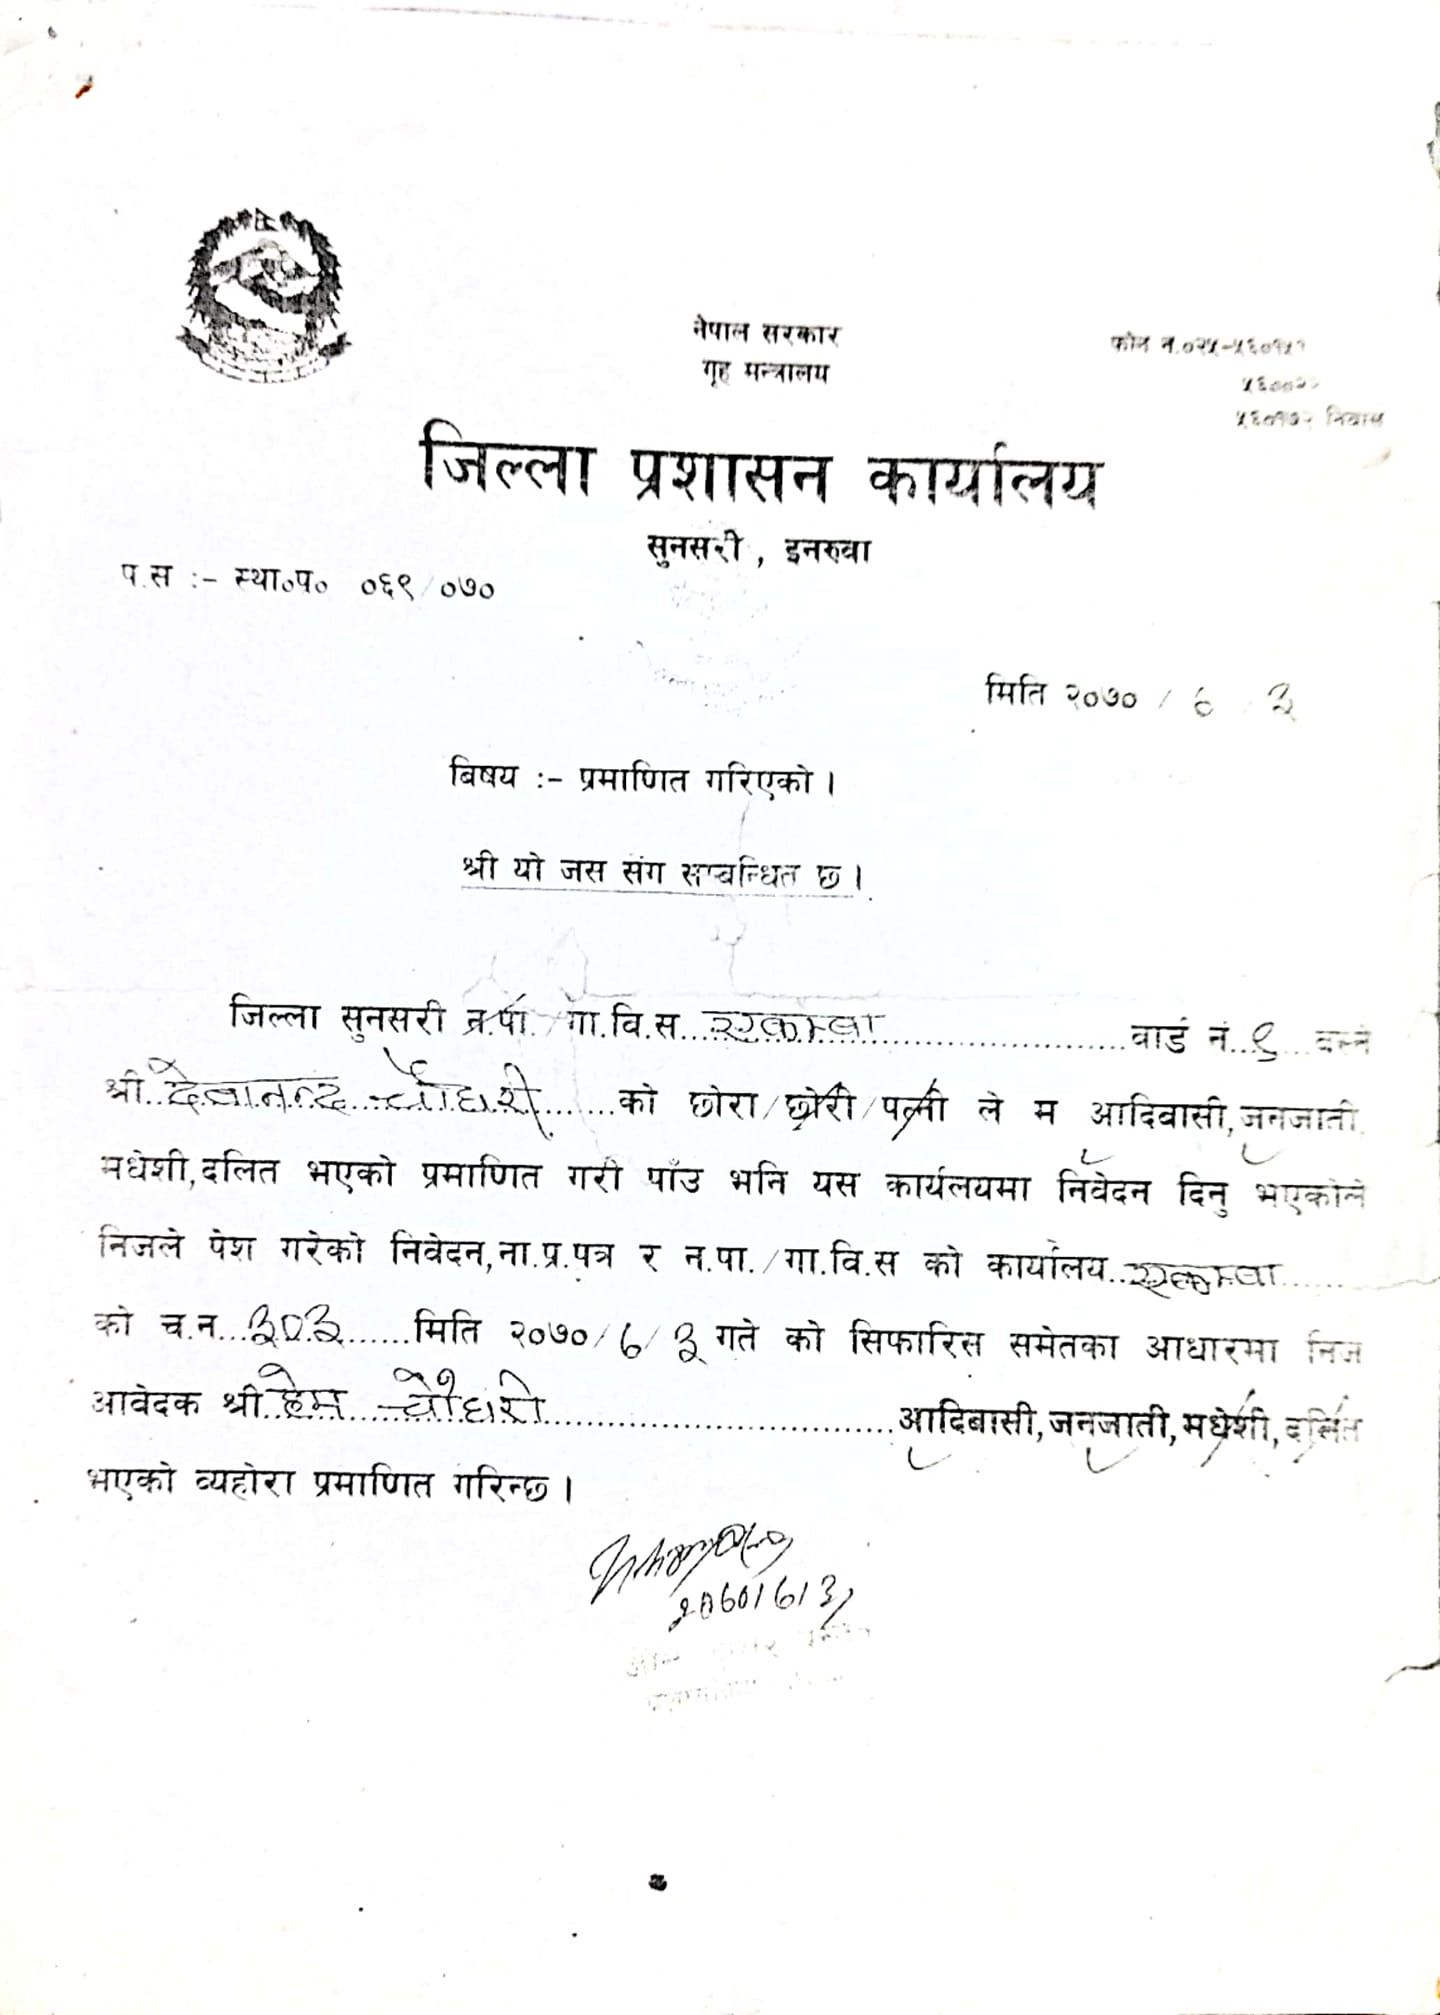 नेपाल सरकार
गृह मन्त्रालय
फोन न.०२५-५६०१५१
५६००२२
५६०१७२ निवास
जिल्ला प्रशासन कार्यालय
सुनसरी , इनरुवा
प.स :- स्था०प० ०६९/०७०
मिति २०७० / ६ / ३
बिषय :- प्रमाणित गरिएको ।
श्री यो जस संग सम्बन्धित छ ।
जिल्ला सुनसरी न.पा./गा.वि.स..एकम्बा...वार्ड नं..९...बस्ने
श्री..देवानन्द चौधरी...को छोरा/छोरी/पत्नी ले म आदिबासी,जनजाती,
मधेशी,दलित भएको प्रमाणित गरी पाँउ भनि यस कार्यलयमा निवेदन दिनु भएकोले
निजले पेश गरेको निवेदन,ना.प्र.पत्र र न.पा./गा.वि.स को कार्यालय..एकम्बा......
को च.न...३०३......मिति २०७०/६/३ गते को सिफारिस समेतका आधारमा निज
आवेदक श्री.हेम चौधरी......आदिबासी,जनजाती,मधेशी,दलित
भएको व्यहोरा प्रमाणित गरिन्छ ।
२०७०/६/३